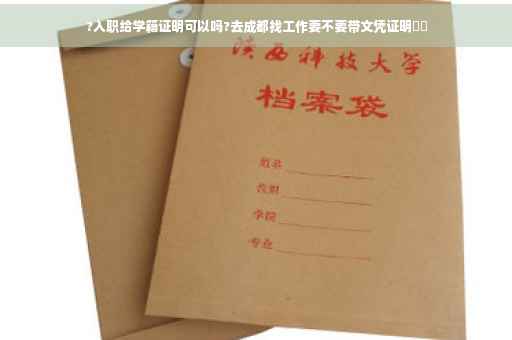 ?入职给学籍证明可以吗?去成都找工作要不要带文凭证明
陕西科技大学
档案袋
姓名
学院
专业